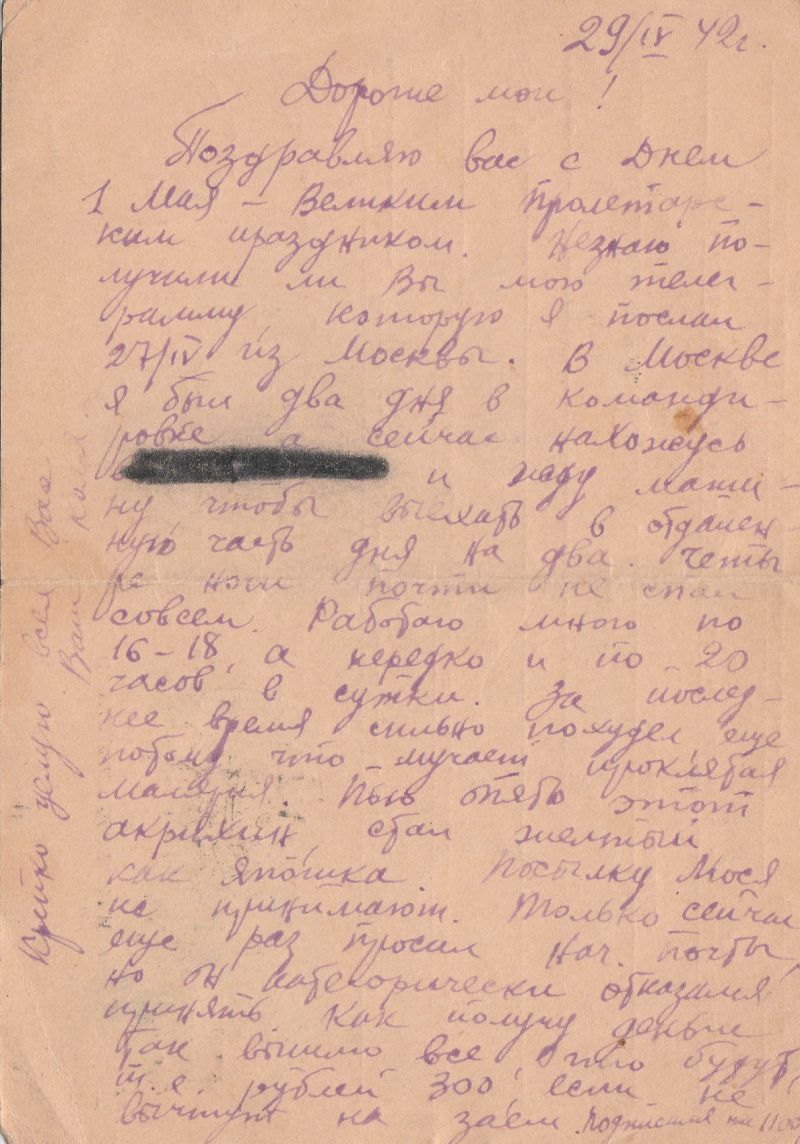 29/IV 42г.
Дорогие мои!
Поздравляю вас с Днем
1 Мая – Великим пролетарс-
ким праздником. Незнаю по-
лучили ли Вы мою телег-
рамму, которую я послал
27/IV из Москвы. В Москве
я был два дня в команди-
ровке а сейчас нахожусь
в и жду маши-
ну чтобы выехать в отдален-
ную часть дня на два. Четы
ре ночи почти не спал
совсем. Работаю много по
16–18, а нередко и по 20
часов в сутки. За послед-
нее время сильно похудел еще
потому что мучает проклятая
малярия. Пью опять этот
акрихин, стал желтый
как япошка. Посылку Мося
не принимают. Только сейчас
еще раз просил нач. почты,
но он категорически отказался
принять. Как получу деньги
так вышлю все, что будут,
т.е. рублей 300, если не
вычтут на заем. Подписался на 1100
Крепко целую всех Вас
Ваш Коля.